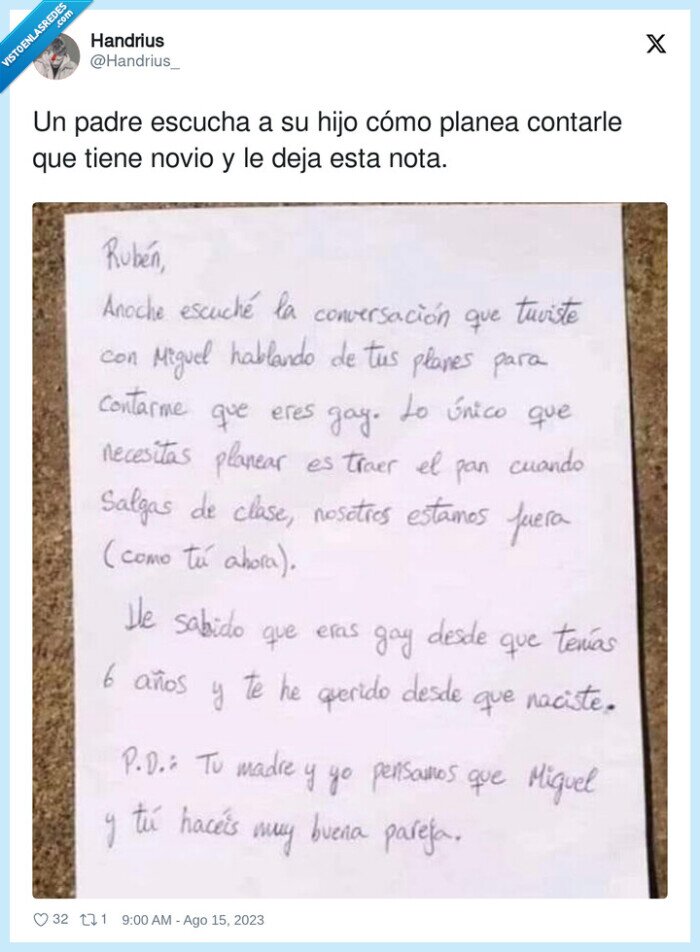 VISTOENLASREDES
.com
Handrius
@Handrius_
X
Un padre escucha a su hijo cómo planea contarle
que tiene novio y le deja esta nota.
Rubén,
Anoche escuché la conversación que tuviste
con Miguel hablando de tus planes para
contarme que eres gay. Lo único que
necesitas planear es traer el pan cuando
salgas de clase, nosotros estamos fuera
(como tú ahora).
He sabido que eras gay desde que tenías
6 años y te he querido desde que naciste.
P.D.: Tu madre y yo pensamos que Miguel
y tú hacéis muy buena pareja.
32 1 9:00 AM - Ago 15, 2023